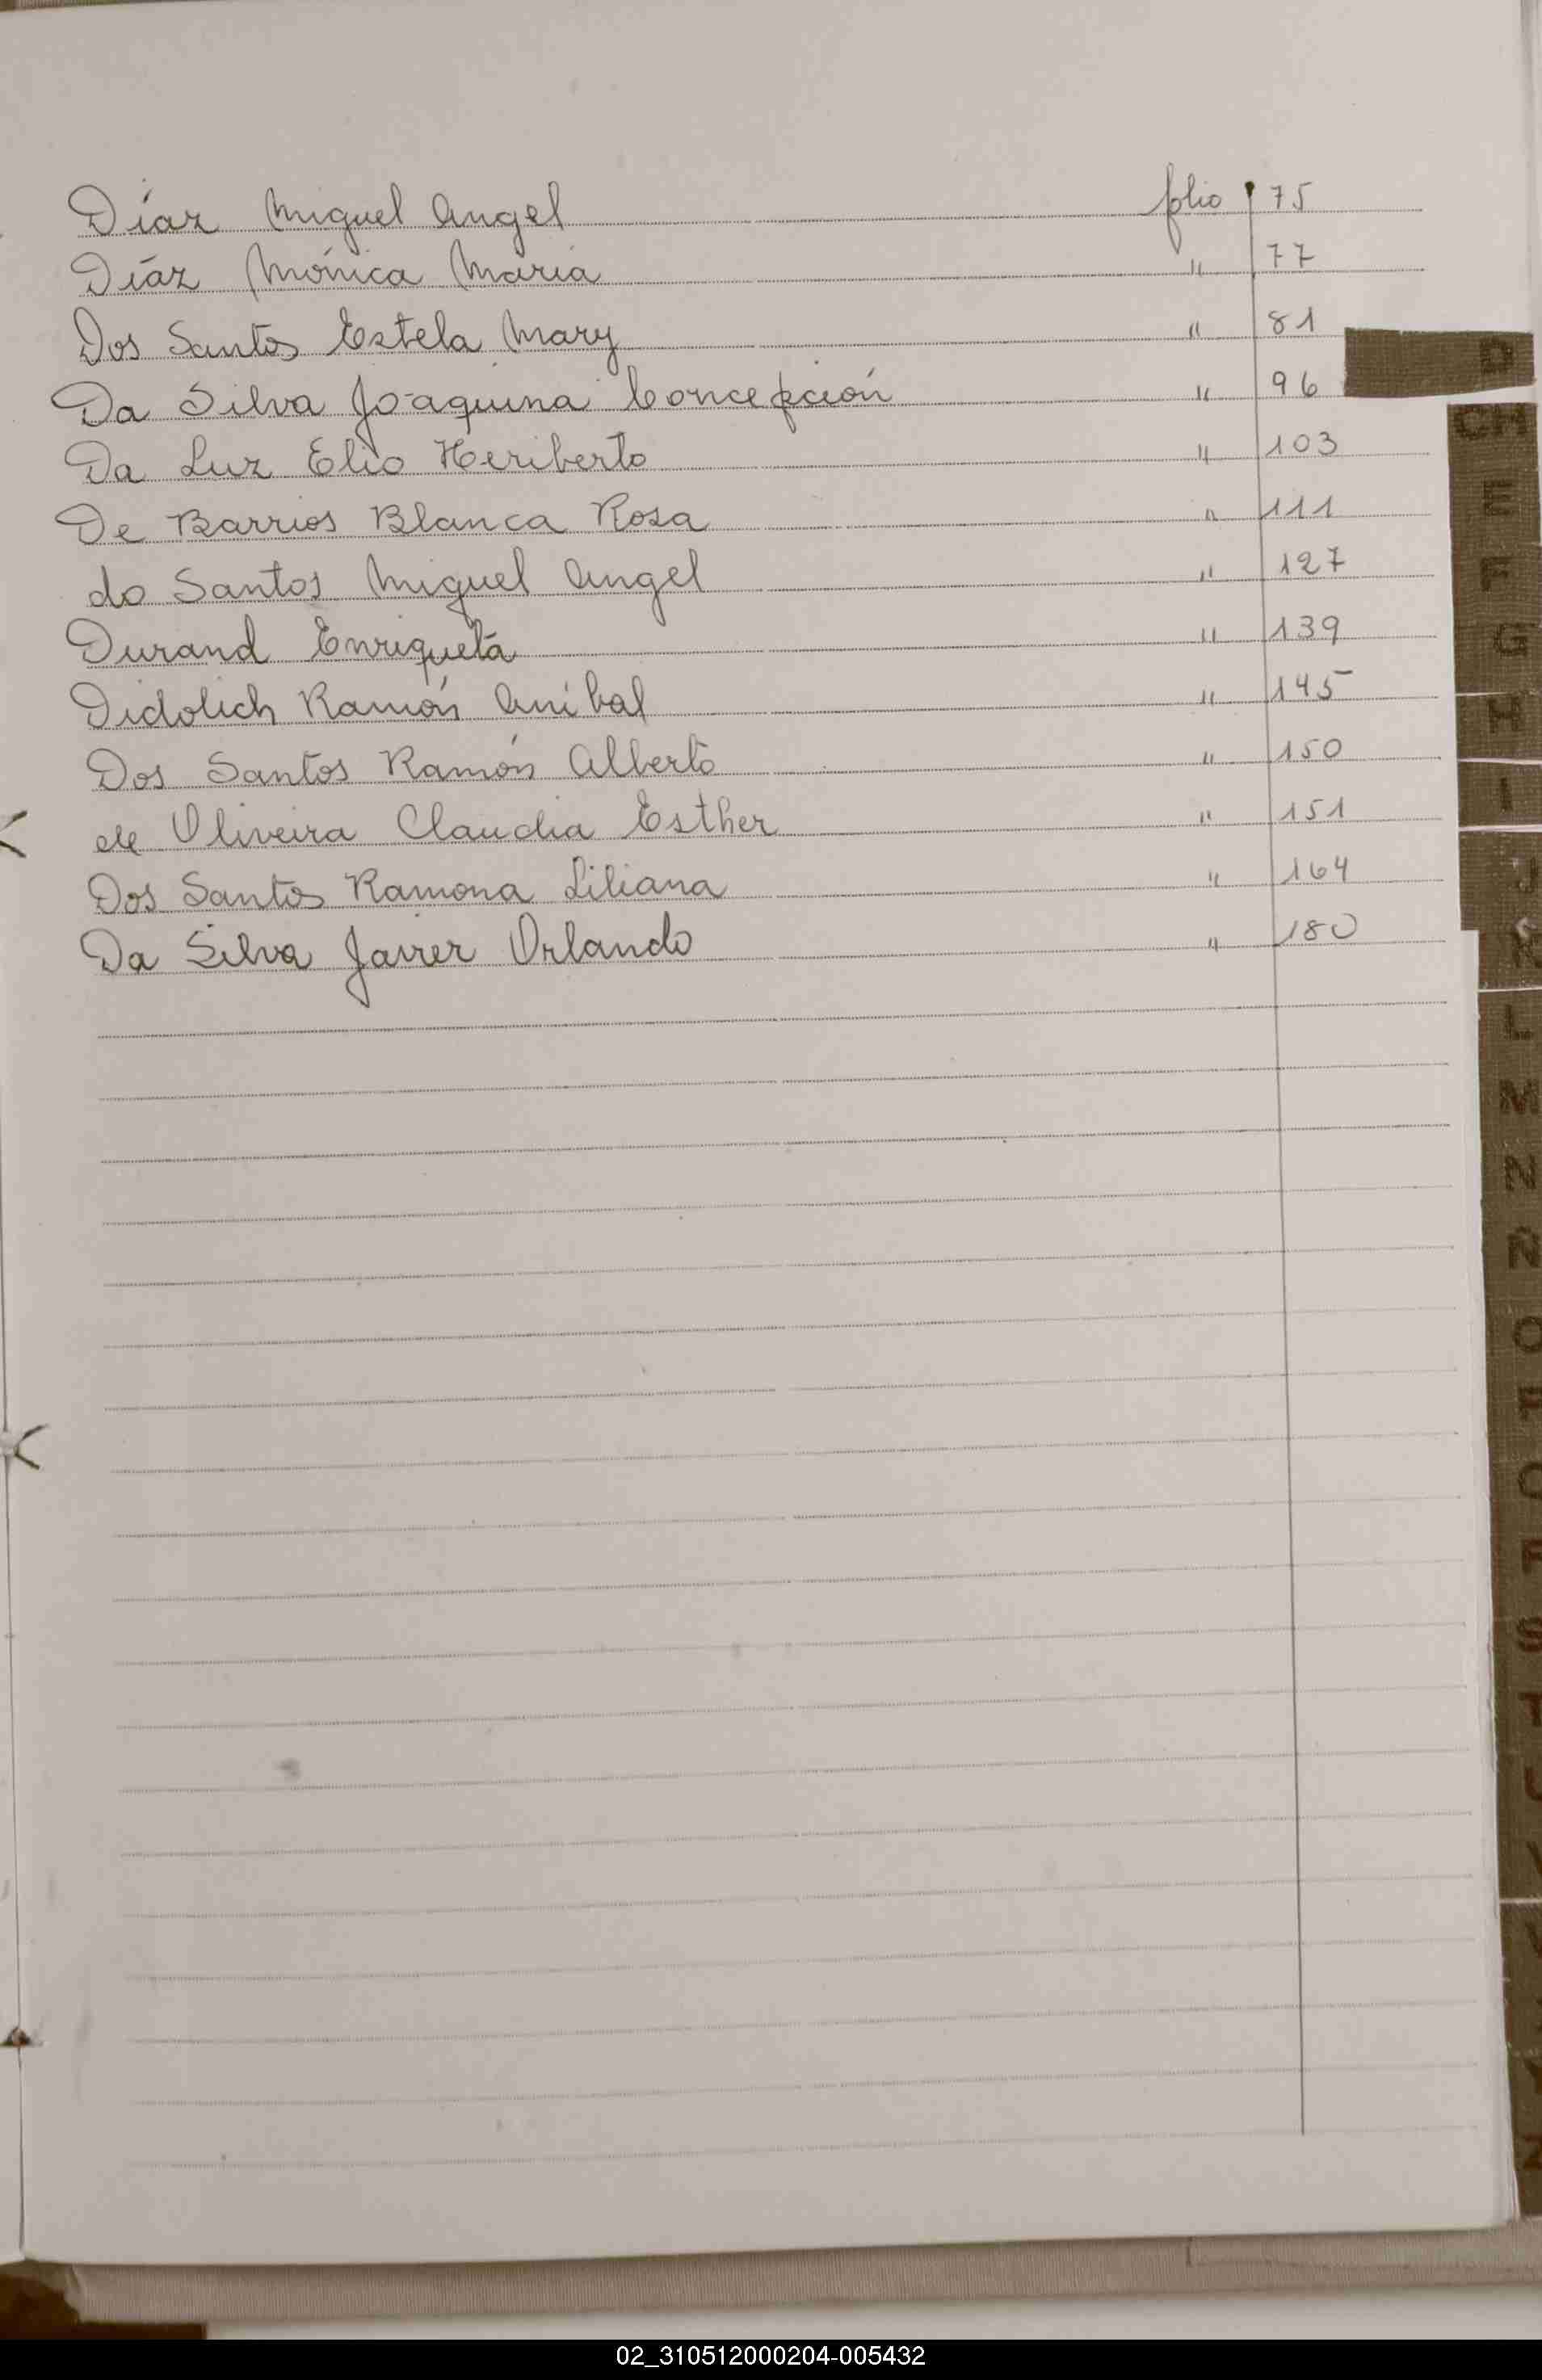 Díaz Miguel Angel folio 75
Díaz Mónica María " 77
Dos Santos Estela Mary " 81
Da Silva Joaquina Concepción " 96
Da Luz Elio Heriberto " 103
De Barrios Blanca Rosa " 111
do Santos Miguel Angel " 127
Durand Enriqueta " 139
Didolich Ramón Aníbal " 145
Dos Santos Ramón Alberto " 150
de Oliveira Claudia Esther " 151
Dos Santos Ramona Liliana " 164
Da Silva Javier Orlando " 180
D
CH
E
F
G
H
I
J
K
L
M
N
Ñ
O
S
T
U
02_310512000204-005432